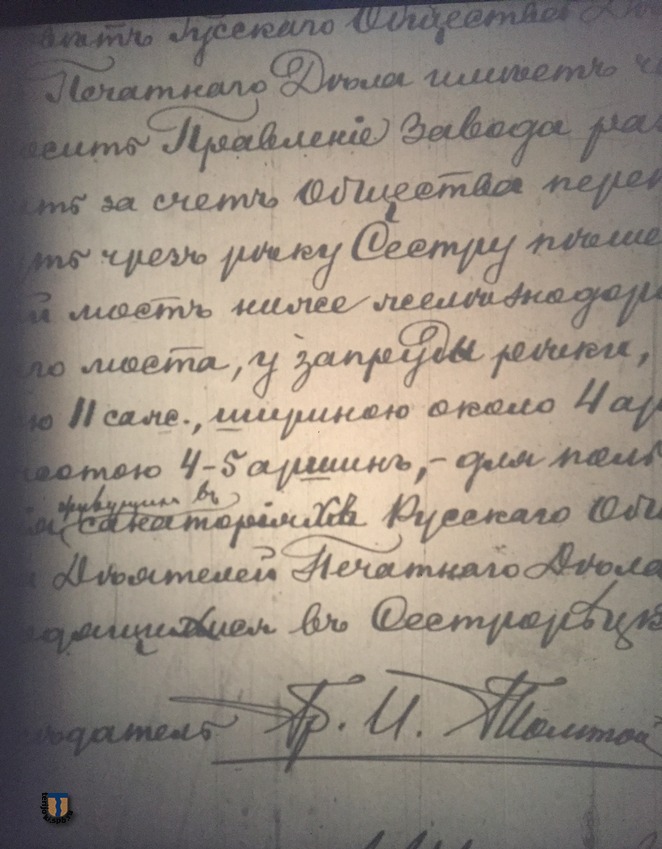 Русскаго Общества
Печатнаго Дѣла имѣетъ ч
осить Правленіе Завода раз
ть за счетъ Общества перек
ть чрезъ рѣчку Сестру пѣше
й мостъ ниже желѣзнодоро
го моста, у запруды рѣчки,
ю 11 саж., шириною около 4 ар
сотою 4-5 аршинъ,- для поль
живущими въ
санаторіяхъ Русскаго Общ
Дѣятелей Печатнаго Дѣла
одящихся въ Сестрорѣцк
едатель Гр. И. Толстой